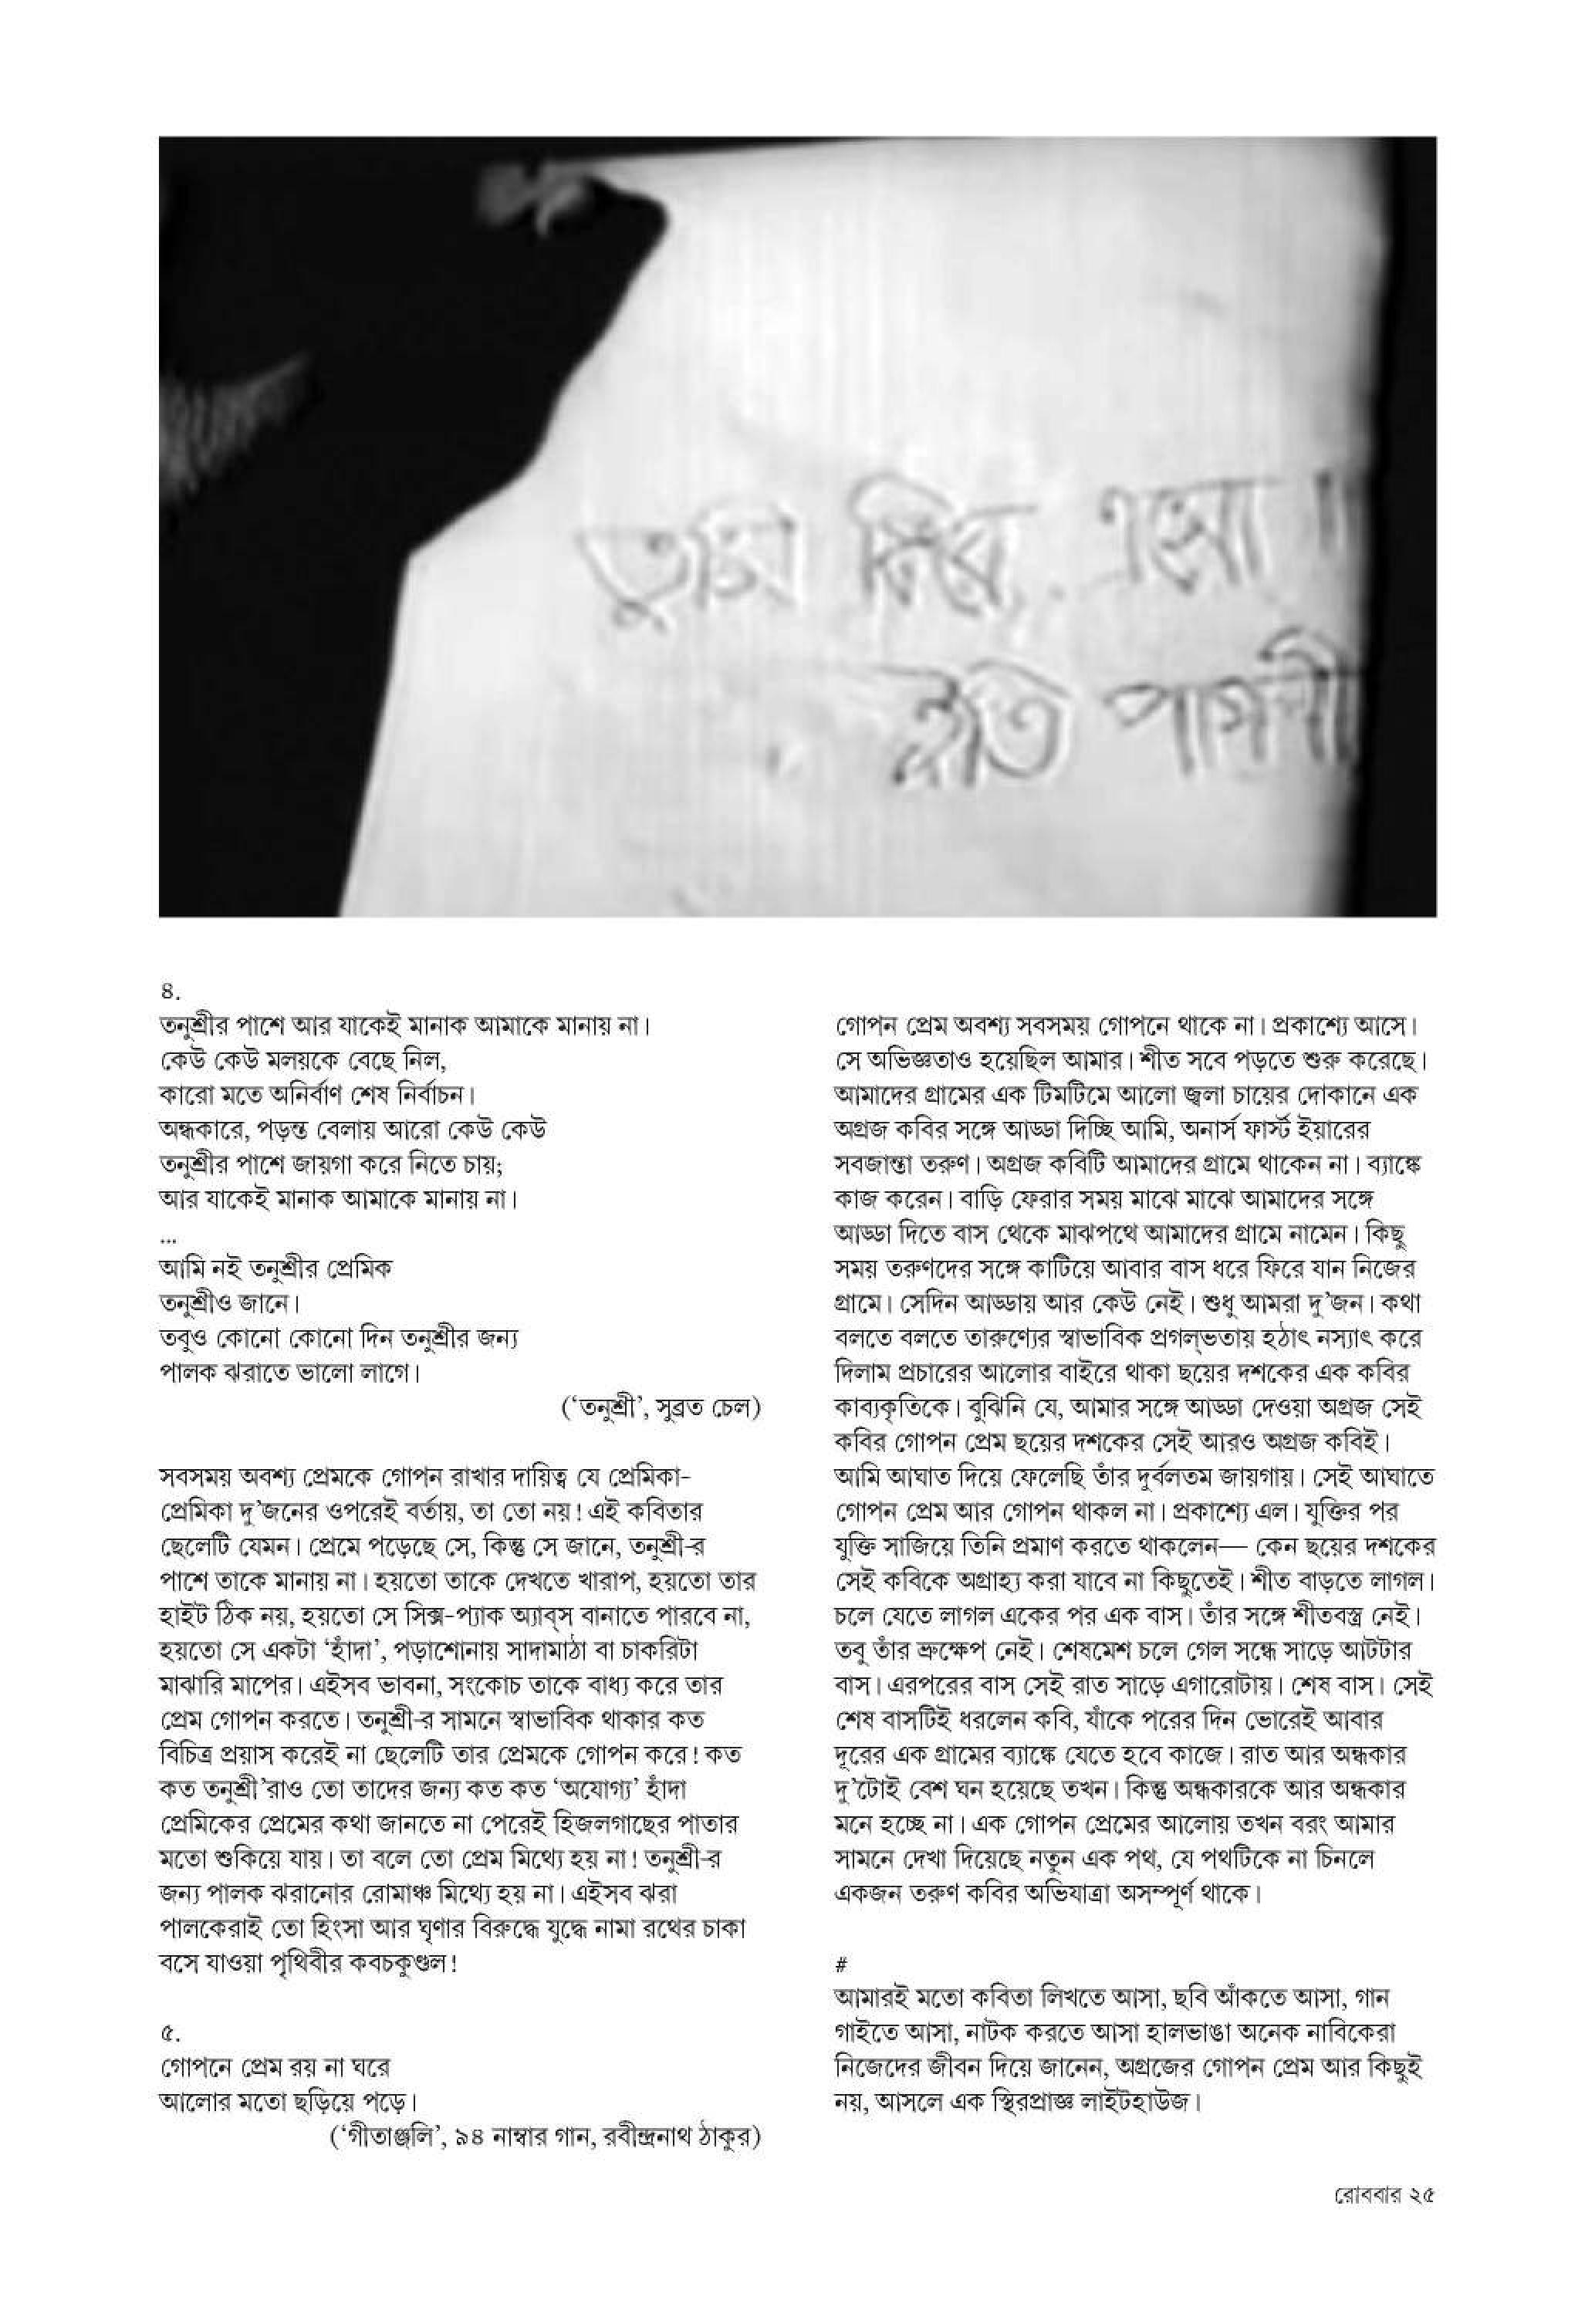 তুমি ফিরে এসো ॥
ইতি পাগলী
৪.
তনুশ্রীর পাশে আর যাকেই মানাক আমাকে মানায় না।
কেউ কেউ মলয়কে বেছে নিল,
কারো মতে অনির্বাণ শেষ নির্বাচন।
অন্ধকারে, পড়ন্ত বেলায় আরো কেউ কেউ
তনুশ্রীর পাশে জায়গা করে নিতে চায়;
আর যাকেই মানাক আমাকে মানায় না।
...
আমি নই তনুশ্রীর প্রেমিক
তনুশ্রীও জানে।
তবুও কোনো কোনো দিন তনুশ্রীর জন্য
পালক ঝরাতে ভালো লাগে।
(‘তনুশ্রী’, সুব্রত চেল)
সবসময় অবশ্য প্রেমকে গোপন রাখার দায়িত্ব যে প্রেমিকা-
প্রেমিকা দু’জনের ওপরেই বর্তায়, তা তো নয়! এই কবিতার
ছেলেটি যেমন। প্রেমে পড়েছে সে, কিন্তু সে জানে, তনুশ্রী-র
পাশে তাকে মানায় না। হয়তো তাকে দেখতে খারাপ, হয়তো তার
হাইট ঠিক নয়, হয়তো সে সিক্স-প্যাক অ্যাব্‌স বানাতে পারবে না,
হয়তো সে একটা ‘হাঁদা’, পড়াশোনায় সাদামাঠা বা চাকরিটা
মাঝারি মাপের। এইসব ভাবনা, সংকোচ তাকে বাধ্য করে তার
প্রেম গোপন করতে। তনুশ্রী-র সামনে স্বাভাবিক থাকার কত
বিচিত্র প্রয়াস করেই না ছেলেটি তার প্রেমকে গোপন করে! কত
কত তনুশ্রী’রাও তো তাদের জন্য কত কত ‘অযোগ্য’ হাঁদা
প্রেমিকের প্রেমের কথা জানতে না পেরেই হিজলগাছের পাতার
মতো শুকিয়ে যায়। তা বলে তো প্রেম মিথ্যে হয় না! তনুশ্রী-র
জন্য পালক ঝরানোর রোমাঞ্চ মিথ্যে হয় না। এইসব ঝরা
পালকেরাই তো হিংসা আর ঘৃণার বিরুদ্ধে যুদ্ধে নামা রথের চাকা
বসে যাওয়া পৃথিবীর কবচকুণ্ডল!
৫.
গোপনে প্রেম রয় না ঘরে
আলোর মতো ছড়িয়ে পড়ে।
(‘গীতাঞ্জলি’, ৯৪ নাম্বার গান, রবীন্দ্রনাথ ঠাকুর)
গোপন প্রেম অবশ্য সবসময় গোপনে থাকে না। প্রকাশ্যে আসে।
সে অভিজ্ঞতাও হয়েছিল আমার। শীত সবে পড়তে শুরু করেছে।
আমাদের গ্রামের এক টিমটিমে আলো জ্বলা চায়ের দোকানে এক
অগ্রজ কবির সঙ্গে আড্ডা দিচ্ছি আমি, অনার্স ফার্স্ট ইয়ারের
সবজান্তা তরুণ। অগ্রজ কবিটি আমাদের গ্রামে থাকেন না। ব্যাঙ্কে
কাজ করেন। বাড়ি ফেরার সময় মাঝে মাঝে আমাদের সঙ্গে
আড্ডা দিতে বাস থেকে মাঝপথে আমাদের গ্রামে নামেন। কিছু
সময় তরুণদের সঙ্গে কাটিয়ে আবার বাস ধরে ফিরে যান নিজের
গ্রামে। সেদিন আড্ডায় আর কেউ নেই। শুধু আমরা দু’জন। কথা
বলতে বলতে তারুণ্যের স্বাভাবিক প্রগল্‌ভতায় হঠাৎ নস্যাৎ করে
দিলাম প্রচারের আলোর বাইরে থাকা ছয়ের দশকের এক কবির
কাব্যকৃতিকে। বুঝিনি যে, আমার সঙ্গে আড্ডা দেওয়া অগ্রজ সেই
কবির গোপন প্রেম ছয়ের দশকের সেই আরও অগ্রজ কবিই।
আমি আঘাত দিয়ে ফেলেছি তাঁর দুর্বলতম জায়গায়। সেই আঘাতে
গোপন প্রেম আর গোপন থাকল না। প্রকাশ্যে এল। যুক্তির পর
যুক্তি সাজিয়ে তিনি প্রমাণ করতে থাকলেন— কেন ছয়ের দশকের
সেই কবিকে অগ্রাহ্য করা যাবে না কিছুতেই। শীত বাড়তে লাগল।
চলে যেতে লাগল একের পর এক বাস। তাঁর সঙ্গে শীতবস্ত্র নেই।
তবু তাঁর ভ্রুক্ষেপ নেই। শেষমেশ চলে গেল সন্ধে সাড়ে আটটার
বাস। এরপরের বাস সেই রাত সাড়ে এগারোটায়। শেষ বাস। সেই
শেষ বাসটিই ধরলেন কবি, যাঁকে পরের দিন ভোরেই আবার
দূরের এক গ্রামের ব্যাঙ্কে যেতে হবে কাজে। রাত আর অন্ধকার
দু’টোই বেশ ঘন হয়েছে তখন। কিন্তু অন্ধকারকে আর অন্ধকার
মনে হচ্ছে না। এক গোপন প্রেমের আলোয় তখন বরং আমার
সামনে দেখা দিয়েছে নতুন এক পথ, যে পথটিকে না চিনলে
একজন তরুণ কবির অভিযাত্রা অসম্পূর্ণ থাকে।
#
আমারই মতো কবিতা লিখতে আসা, ছবি আঁকতে আসা, গান
গাইতে আসা, নাটক করতে আসা হালভাঙা অনেক নাবিকেরা
নিজেদের জীবন দিয়ে জানেন, অগ্রজের গোপন প্রেম আর কিছুই
নয়, আসলে এক স্থিরপ্রাজ্ঞ লাইটহাউজ।
রোববার ২৫